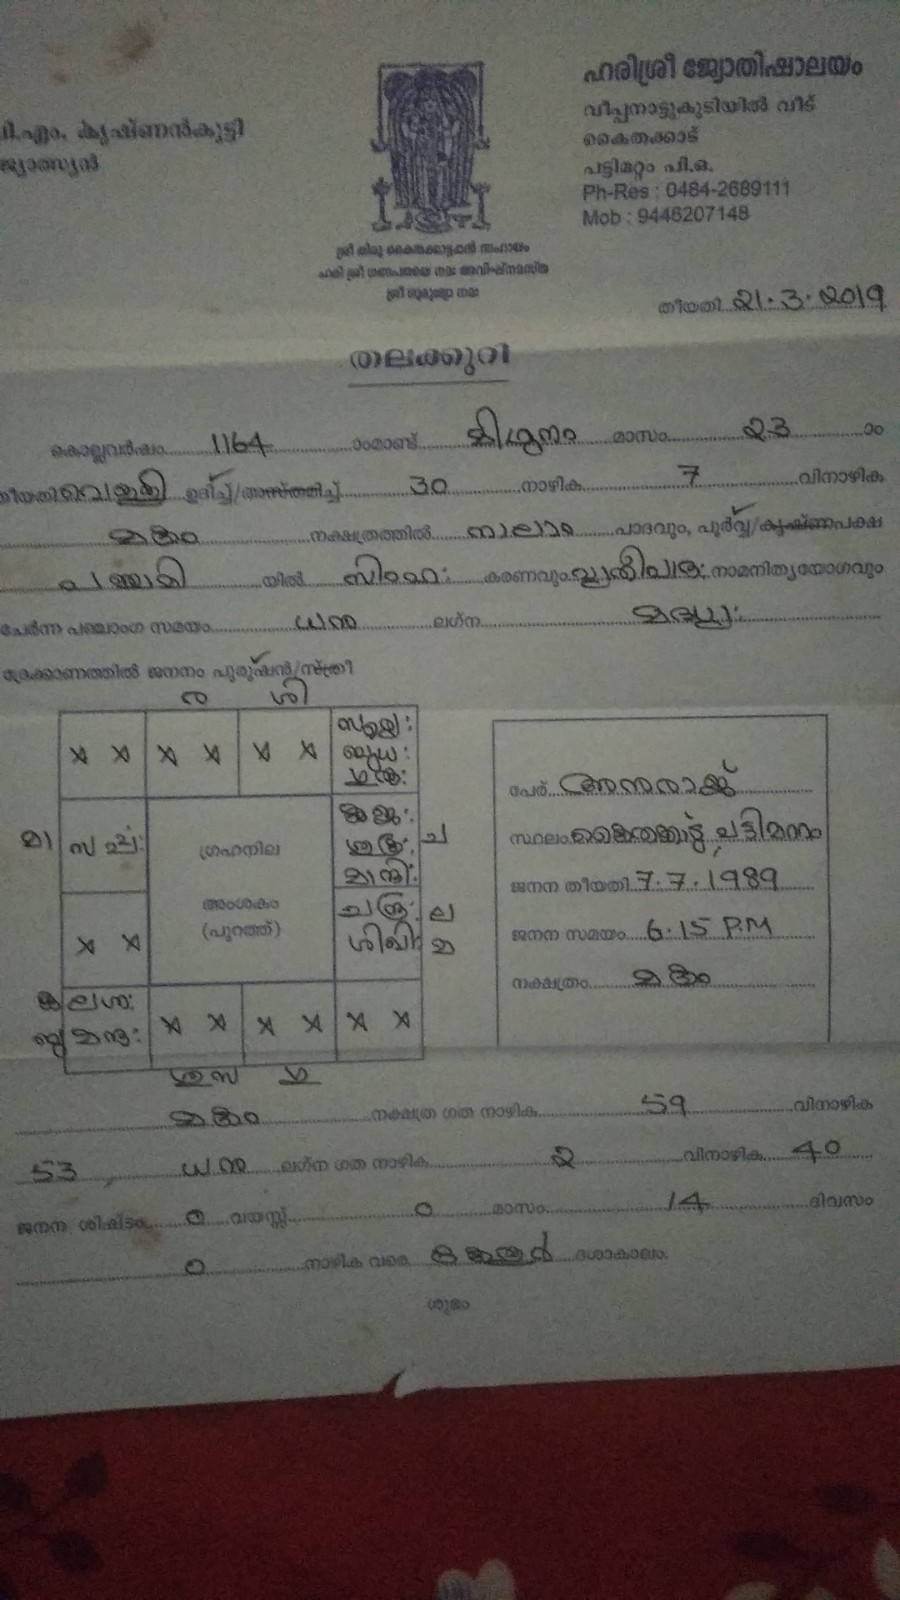 കൃഷ്ണൻകുട്ടി
ഹരിശ്രീ ജ്യോതിഷാലയം
വീപ്പനാട്ടുകുടിയിൽ വീട്
കൈതക്കാട്
പട്ടിമറ്റം പി.ഒ.
Ph-Res : 0484-2689111
Mob : 9446207148
തീയതി 21.3.2019
തലക്കുറി
കൊല്ലവർഷം 1164 ാംമാണ്ട് മിഥുനം മാസം 23 ാം
തീയതി വെള്ളി ഉദിച്ച്/അസ്തമിച്ച് 30 നാഴിക 7 വിനാഴിക
മകം നക്ഷത്രത്തിൽ നാലാം പാദവും, പൂർവ്വ/കൃഷ്ണപക്ഷ
പഞ്ചമി യിൽ സിംഹ: കരണവും വ്യതീപാത: നാമനിത്യയോഗവും
ചേർന്ന പഞ്ചാംഗ സമയം ധനു ലഗ്ന മദ്ധ്യ:
ദ്രേക്കാണത്തിൽ ജനനം പുരുഷൻ/സ്ത്രീ
ര ശി
x x x x x x സൂര്യ:
ബുധ:
ഗുരു:
മാ സർപ്പ: ഗ്രഹനില കുജ:
ശുക്ര: ച
മാന്ദി:
x x അംശകം ചന്ദ്ര: ല
(പുറത്ത്) ശിഖി: മ
കു ലഗ്ന:
ബു മന്ദ: x x x x x x
ശു സ ഗു
പേര് അനുരാജ്
സ്ഥലം കൈതക്കാട്, പട്ടിമറ്റം
ജനന തീയതി 7.7.1989
ജനന സമയം 6.15 P.M
നക്ഷത്രം മകം
മകം നക്ഷത്ര ഗത നാഴിക 59 വിനാഴിക
53, ധനു ലഗ്ന ഗത നാഴിക 2 വിനാഴിക 40
ജനന ശിഷ്ടം 0 വയസ്സ് 0 മാസം 14 ദിവസം
0 നാഴിക വരെ കേതുർ ദശാകാലം.
ശുഭം